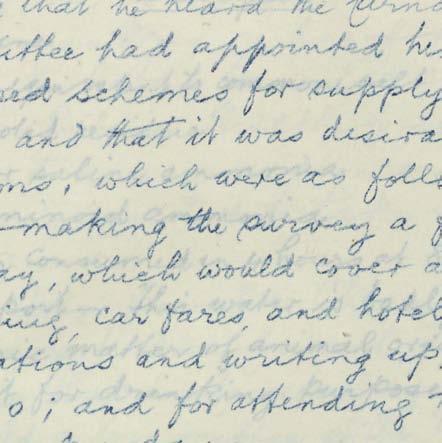 that he heard the
ittee had appointed h
ed schemes for supply
and that it was desira
ms, which were as foll
making the survey a
ay, which would cover a
ing, car fares, and hotel
ations and writing up
0; and for attending